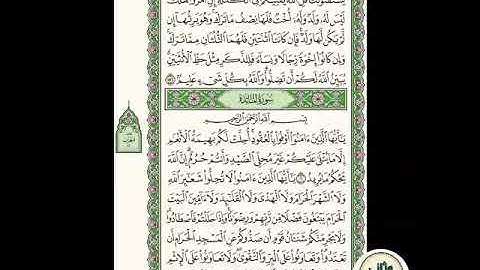 يَسْتَفْتُونَكَ قُلِ اللَّهُ يُفْتِيكُمْ فِي الْكَلَالَةِ إِنِ امْرُؤٌا هَلَكَ
لَيْسَ لَهُ وَلَدٌ وَلَهُ أُخْتٌ فَلَهَا نِصْفُ مَا تَرَكَ وَهُوَ يَرِثُهَا إِن
لَّمْ يَكُن لَّهَا وَلَدٌ فَإِن كَانَتَا اثْنَتَيْنِ فَلَهُمَا الثُّلُثَانِ مِمَّا تَرَكَ
وَإِن كَانُوا إِخْوَةً رِّجَالًا وَنِسَاءً فَلِلذَّكَرِ مِثْلُ حَظِّ الْأُنثَيَيْنِ
يُبَيِّنُ اللَّهُ لَكُمْ أَن تَضِلُّوا وَاللَّهُ بِكُلِّ شَيْءٍ عَلِيمٌ
سُورَةُ الْمَائِدَةِ
بِسْمِ اللَّهِ الرَّحْمَٰنِ الرَّحِيمِ
يَا أَيُّهَا الَّذِينَ آمَنُوا أَوْفُوا بِالْعُقُودِ أُحِلَّتْ لَكُم بَهِيمَةُ الْأَنْعَامِ
إِلَّا مَا يُتْلَىٰ عَلَيْكُمْ غَيْرَ مُحِلِّي الصَّيْدِ وَأَنتُمْ حُرُمٌ إِنَّ اللَّهَ
يَحْكُمُ مَا يُرِيدُ ١ يَا أَيُّهَا الَّذِينَ آمَنُوا لَا تُحِلُّوا شَعَائِرَ اللَّهِ
وَلَا الشَّهْرَ الْحَرَامَ وَلَا الْهَدْيَ وَلَا الْقَلَائِدَ وَلَا آمِّينَ الْبَيْتَ
الْحَرَامَ يَبْتَغُونَ فَضْلًا مِّن رَّبِّهِمْ وَرِضْوَانًا وَإِذَا حَلَلْتُمْ فَاصْطَادُوا
وَلَا يَجْرِمَنَّكُمْ شَنَآنُ قَوْمٍ أَن صَدُّوكُمْ عَنِ الْمَسْجِدِ الْحَرَامِ أَن
تَعْتَدُوا وَتَعَاوَنُوا عَلَى الْبِرِّ وَالتَّقْوَىٰ وَلَا تَعَاوَنُوا عَلَى الْإِثْمِ